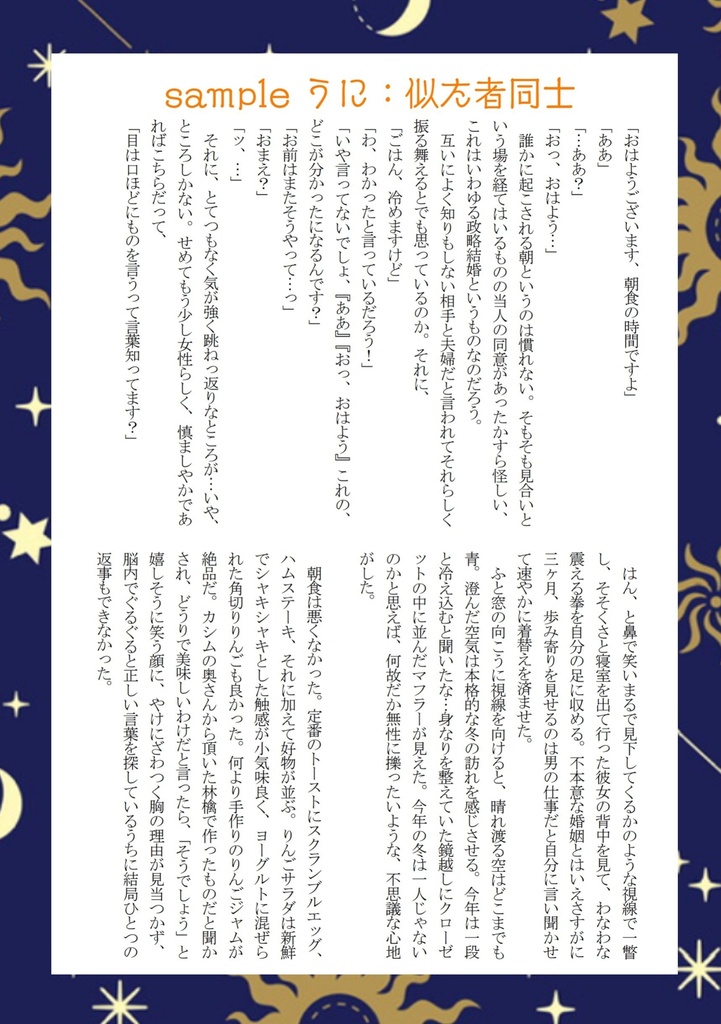 sample うに：似た者同士
「おはようございます、朝食の時間ですよ」
「ああ」
「…ああ？」
「おっ、おはよう…」
　誰かに起こされる朝というのは慣れない。そもそも見合いと
いう場を経てはいるものの当人の同意があったかすら怪しい、
これはいわゆる政略結婚というものなのだろう。
　互いによく知りもしない相手と夫婦だと言われてそれらしく
振る舞えるとでも思っているのか。それに、
「ごはん、冷めますけど」
「わ、わかったと言っているだろう！」
「いや言ってないでしょ、『ああ』『おっ、おはよう』これの、
どこが分かったになるんです？」
「お前はまたそうやって…っ」
「おまえ？」
「ッ、…」
　それに、とてつもなく気が強く跳ねっ返りなところが…いや、
ところしかない。せめてもう少し女性らしく、慎ましやかであ
ればこちらだって、
「目は口ほどにものを言うって言葉知ってます？」
　はん、と鼻で笑いまるで見下してくるかのような視線で一瞥
し、そそくさと寝室を出て行った彼女の背中を見て、わなわな
震える拳を自分の足に収める。不本意な婚姻とはいえさすがに
三ヶ月、歩み寄りを見せるのは男の仕事だと自分に言い聞かせ
て速やかに着替えを済ませた。
　ふと窓の向こうに視線を向けると、晴れ渡る空はどこまでも
青。澄んだ空気は本格的な冬の訪れを感じさせる。今年は一段
と冷え込むと聞いたな…身なりを整えていた鏡越しにクローゼ
ットの中に並んだマフラーが見えた。今年の冬は一人じゃない
のかと思えば、何故だか無性に擽ったいような、不思議な心地
がした。
　朝食は悪くなかった。定番のトーストにスクランブルエッグ、
ハムステーキ、それに加えて好物が並ぶ。りんごサラダは新鮮
でシャキシャキとした触感が小気味良く、ヨーグルトに混ぜら
れた角切りりんごも良かった。何より手作りのりんごジャムが
絶品だ。カシムの奥さんから頂いた林檎で作ったものだと聞か
され、どうりで美味しいわけだと言ったら、「そうでしょう」と
嬉しそうに笑う顔に、やけにざわつく胸の理由が見当つかず、
脳内でぐるぐると正しい言葉を探しているうちに結局ひとつの
返事もできなかった。